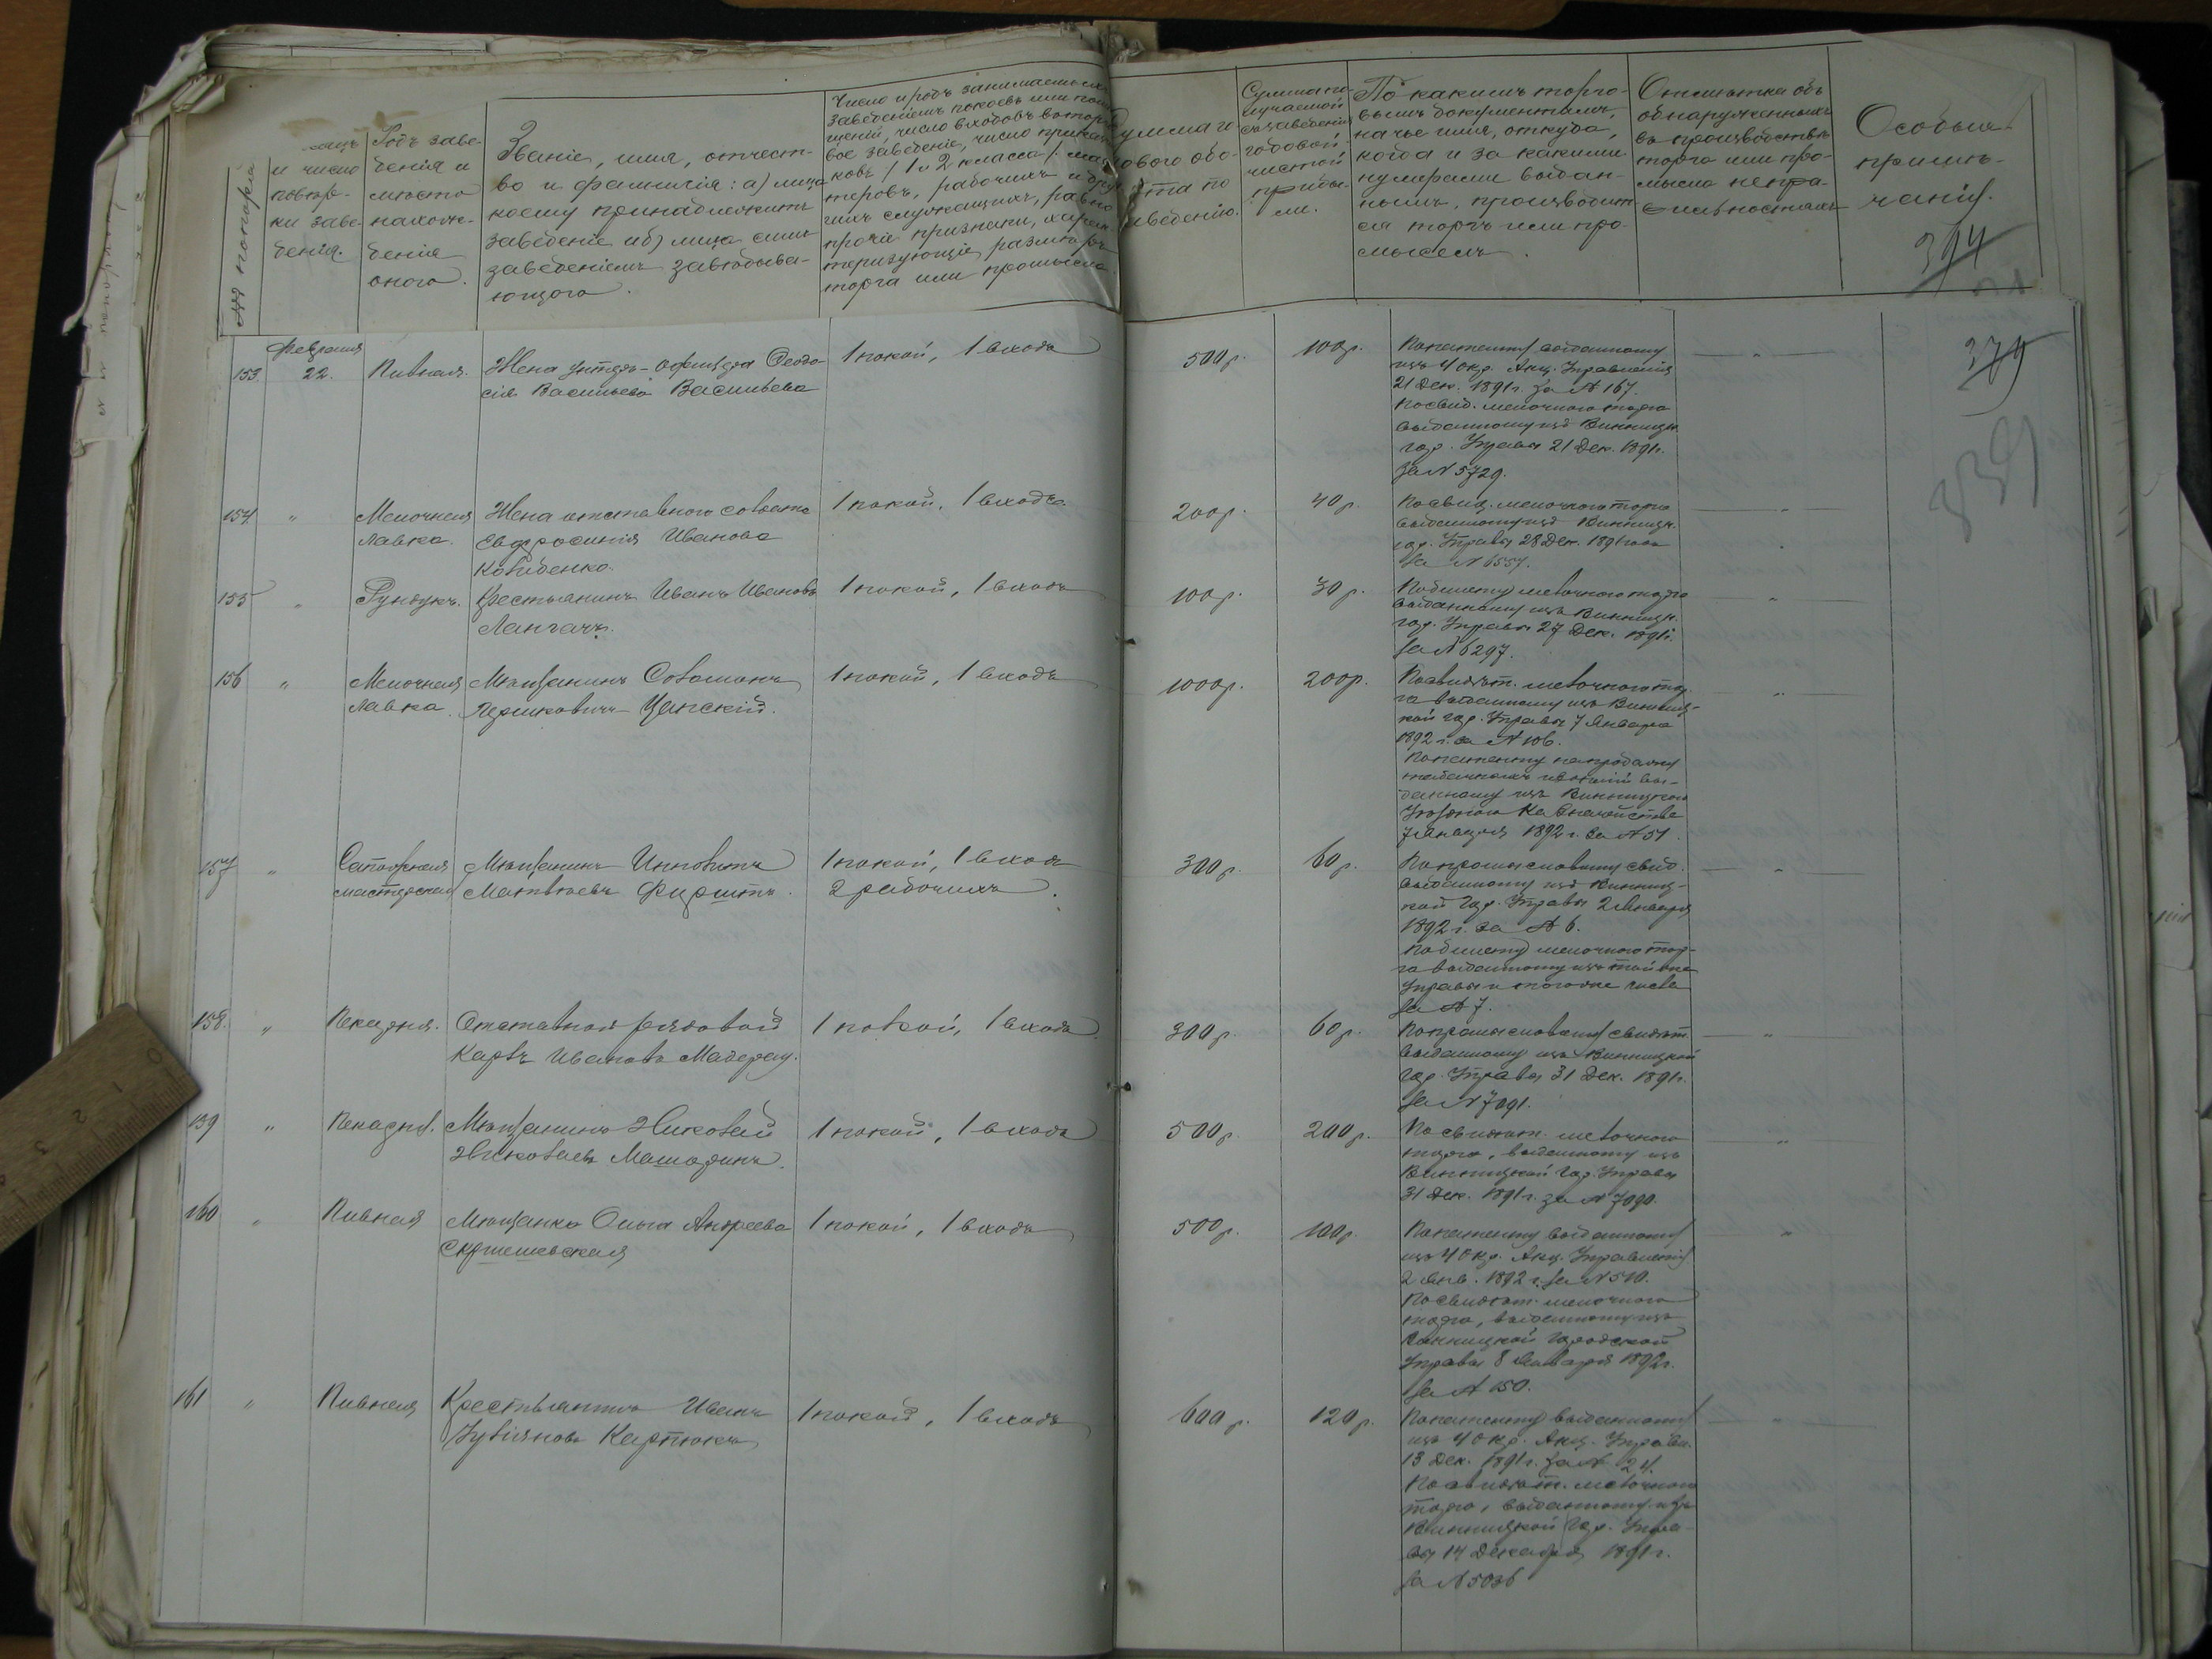 №№ по порядку
и число
повѣр-
ки заве-
денія.
Родъ заве-
денія и
мѣсто
нахож-
денія
онаго.
Званіе, имя, отчест-
во и фамилія: а) лица
коему принадлежитъ
заведеніе и б) лица симъ
заведеніемъ завѣдыва-
ющаго.
Число и родъ занимаемыхъ
заведеніемъ покоевъ или
число входовъ въ
заведеніе, число
ковъ 1 и 2 класса,
рабочихъ и
служащихъ,
прочіе признаки,
теризующіе размѣръ
торга или промысла.
Сумма
оваго обо-
та по
аведенію.
Сумма по-
лучаемой
заведенія
годовой
чистой
прибы-
ли.
По какимъ торго-
вымъ документамъ,
на чье имя, откуда,
когда и за какими
нумерами выдан-
нымъ, производит-
ся торгъ или про-
мыселъ.
Отмѣтка объ
обнаруженныхъ
въ производствѣ
торга или про-
мысла непра-
вильностяхъ
Особыя
примѣ-
чанія.
394
379
339
Февраля
153. 22. Пивная. Жена унтеръ-офицера Ѳеодо- 1 покой, 1 входъ 500 р. 100 р.
сія Васильева Васильева
По патенту выданному
изъ 4 окр. Акц. Управленія
21 Дек. 1891 г. за № 167.
По свид. мелочного торга
выданному изъ Винницк.
гор. Управы 21 Дек. 1891 г.
за № 5729.
154 " Мелочная Жена отставного солдата 1 покой, 1 входъ. 200 р. 40 р.
лавка. Евфросинія Иванова
По свид. мелочного торга
выданному изъ Винницк.
гор. Управы 28 Дек. 1891 года
за № 6557.
155 " Рундукъ. Крестьянинъ Иванъ Ивановъ 1 покой, 1 входъ 100 р. 30 р.
По билету мелочного торга
выданному изъ Винницк.
гор. Управы 27 Дек. 1891 г.
за № 6297.
156 " Мелочная Мѣщанинъ Соломонъ 1 покой, 1 входъ 1000 р. 200 р.
лавка. Цанскій.
По свидѣт. мелочного тор-
га выданному изъ Винниц-
кой гор. Управы 7 Января
1892 г. за № 106.
По патенту на продажу
табачныхъ издѣлій вы-
данному изъ Винницкаго
Уѣзднаго Казначейства
7 Января 1892 г. за № 51.
157 " Сапожная Мѣщанинъ 1 покой, 1 входъ 300 р. 60 р.
мастерская Матвѣевъ 2 рабочихъ.
По промысловому свид.
выданному изъ Винниц-
кой гор. Управы 2 Января
1892 г. за № 6.
По билету мелочного тор-
га выданному изъ той же
Управы и того же числа
за № 7.
158. " Пекарня. Отставной рядовой 1 покой, 1 входъ 300 р. 60 р.
Карлъ Ивановъ
По промысловому свидѣт.
выданному изъ Винницкой
гор. Управы 31 Дек. 1891 г.
за № 7091.
159 " Пекарня. Мѣщанинъ Николай 1 покой, 1 входъ 500 р. 200 р.
Николаевъ Машаринъ.
По свидѣт. мелочного
торга, выданному изъ
Винницкой гор. Управы
31 Дек. 1891 г. за № 7090.
160 " Пивная Мѣщанка Ольга Андреева 1 покой, 1 входъ 500 р. 100 р.
По патенту выданному
изъ 4 окр. Акц. Управленія
2 Янв. 1892 г. за № 510.
По свидѣт. мелочного
торга, выданному изъ
Винницкой городской
Управы 8 Января 1892 г.
за № 150.
161 " Пивная Крестьянинъ Иванъ 1 покой, 1 входъ 600 р. 120 р.
Карпюкъ
По патенту выданному
изъ 4 окр. Акц. Управл.
13 Дек. 1891 г. за № 24.
По свидѣт. мелочного
торга, выданному изъ
Винницкой гор. Упра-
вы 14 Декабря 1891 г.
за № 5036